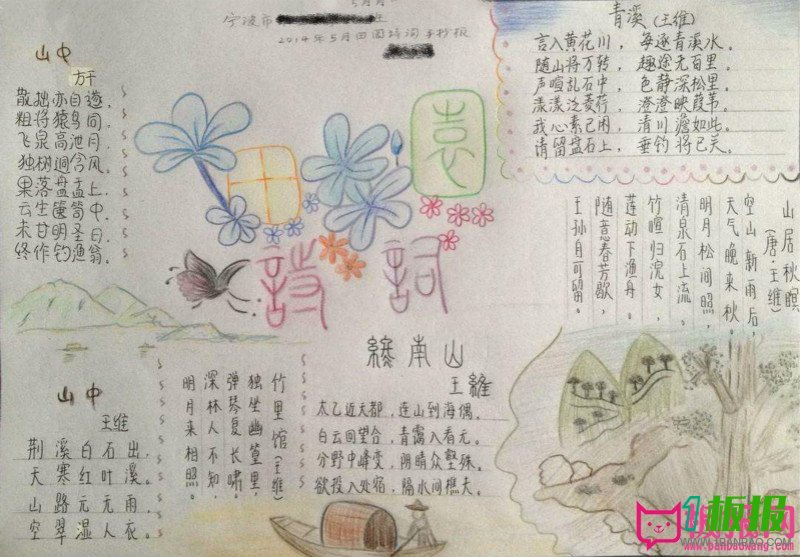 宁波市
2014年5月田园诗词手抄报
山中
方干
散拙亦自遂，
粗将猿鸟同。
飞泉高池月，
独树迥含风。
果落盘盂上，
云生箧笥中。
未甘明圣日，
终作钓渔翁。
田園
詩詞
青溪(王维)
言入黄花川，每逐青溪水。
随山将万转，趣途无百里。
声喧乱石中，色静深松里。
漾漾泛菱荇，澄澄映葭苇。
我心素已闲，清川澹如此。
请留盘石上，垂钓将已矣。
山居秋暝
(唐·王维)
空山新雨后，
天气晚来秋。
明月松间照，
清泉石上流。
竹喧归浣女，
莲动下渔舟。
随意春芳歇，
王孙自可留。
山中
王维
荆溪白石出，
天寒红叶溪。
山路元无雨，
空翠湿人衣。
竹里馆(王维)
独坐幽篁里，
弹琴复长啸。
深林人不知，
明月来相照。
終南山
王維
太乙近天都，连山到海偶。
白云回望合，青霭入看无。
分野中峰变，阴晴众壑殊。
欲投人处宿，隔水问樵夫。
1板报
www.banbaowang.com